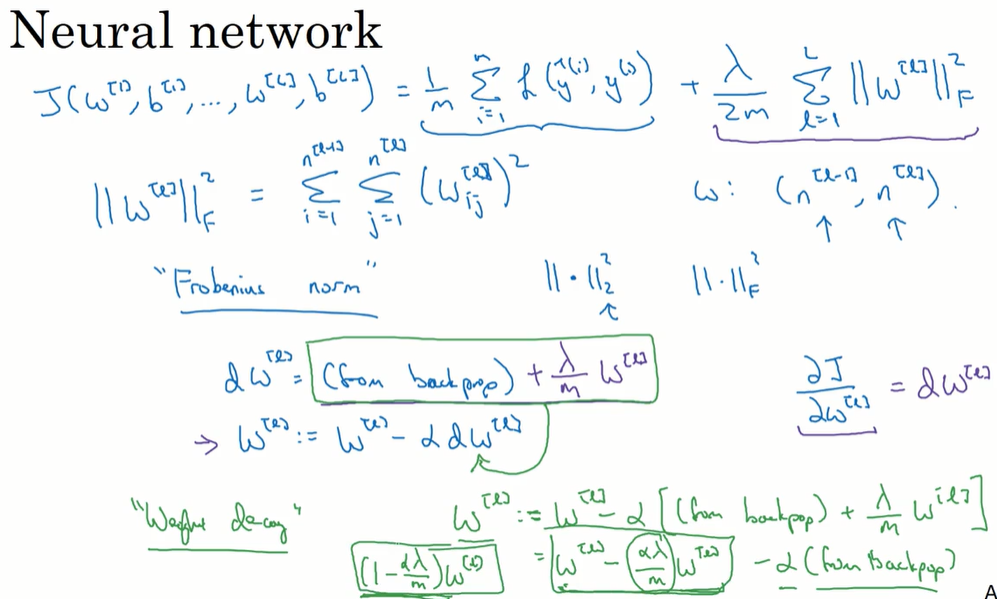 Neural network
J(w^[1], b^[1], ..., w^[L], b^[L]) = 1/m Σ_{i=1}^{m} L(ŷ^(i), y^(i)) + λ/2m Σ_{l=1}^{L} ||w^[l]||_F^2
||w^[l]||_F^2 = Σ_{i=1}^{n^[l-1]} Σ_{j=1}^{n^[l]} (w_ij^[l])^2 w: (n^[l-1], n^[l]).
↑ ↑
"Frobenius norm" ||·||_2^2 ||·||_F^2
↑
dw^[l] = (from backprop) + λ/m w^[l] ∂J/∂w^[l] = dw^[l]
→ w^[l] := w^[l] - α dw^[l]
"Weight decay" w^[l] := w^[l] - α [(from backpop) + λ/m w^[l]]
(1 - αλ/m) w^[l] = w^[l] - αλ/m w^[l] - α (from Backpop)
A